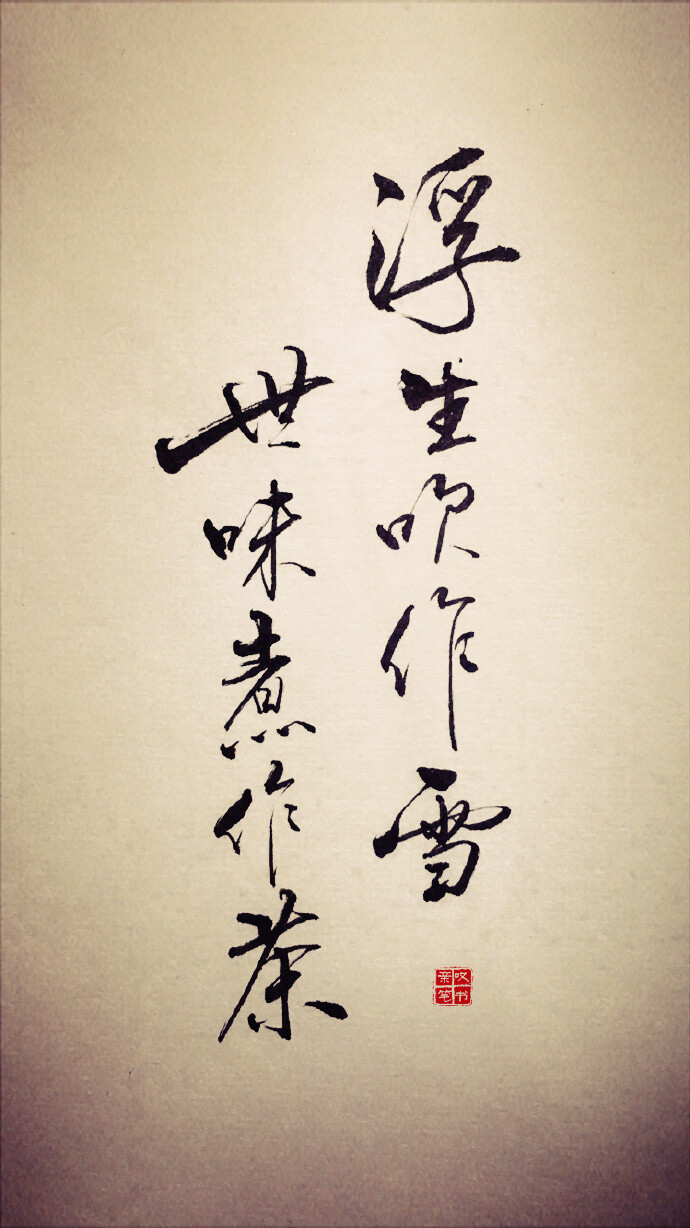 浮生吹作雪
世味煮作茶
叹书
亲笔